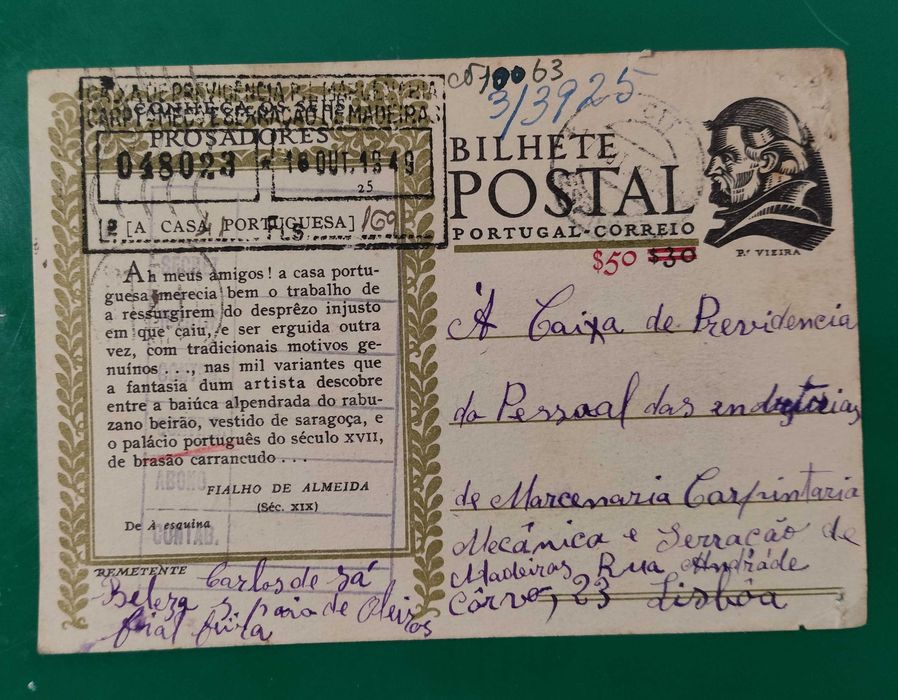 CAIXA DE PREVIDÊNCIA
CONHEÇA OS SEUS
CARP. MEC. E SERRAÇÃO DE MADEIRAS
PROSADORES
048023 18 OUT. 1949
25
[A CASA PORTUGUESA] 169
FLS
Ah meus amigos! a casa portu-
guesa merecia bem o trabalho de
a ressurgirem do desprêzo injusto
em que caiu, e ser erguida outra
vez, com tradicionais motivos ge-
nuínos . . ., nas mil variantes que
a fantasia dum artista descobre
entre a baiúca alpendrada do rabu-
zano beirão, vestido de saragoça, e
o palácio português do século XVII,
de brasão carrancudo . . .
FIALHO DE ALMEIDA
(Séc. XIX)
De À esquina
ABONO
CONTAB.
REMETENTE
Carlos de Sá
Beleza S. Paio de Oleiros
feira
10063
3/3925
BILHETE
POSTAL
PORTUGAL-CORREIO
$50 $30
P.e VIEIRA
Á Caixa de Previdencia
do Pessoal das industrias
de Marcenaria Carpintaria
Mecânica e Serração de
Madeiras, Rua Andráde
Côrvo, 23 Lisbôa